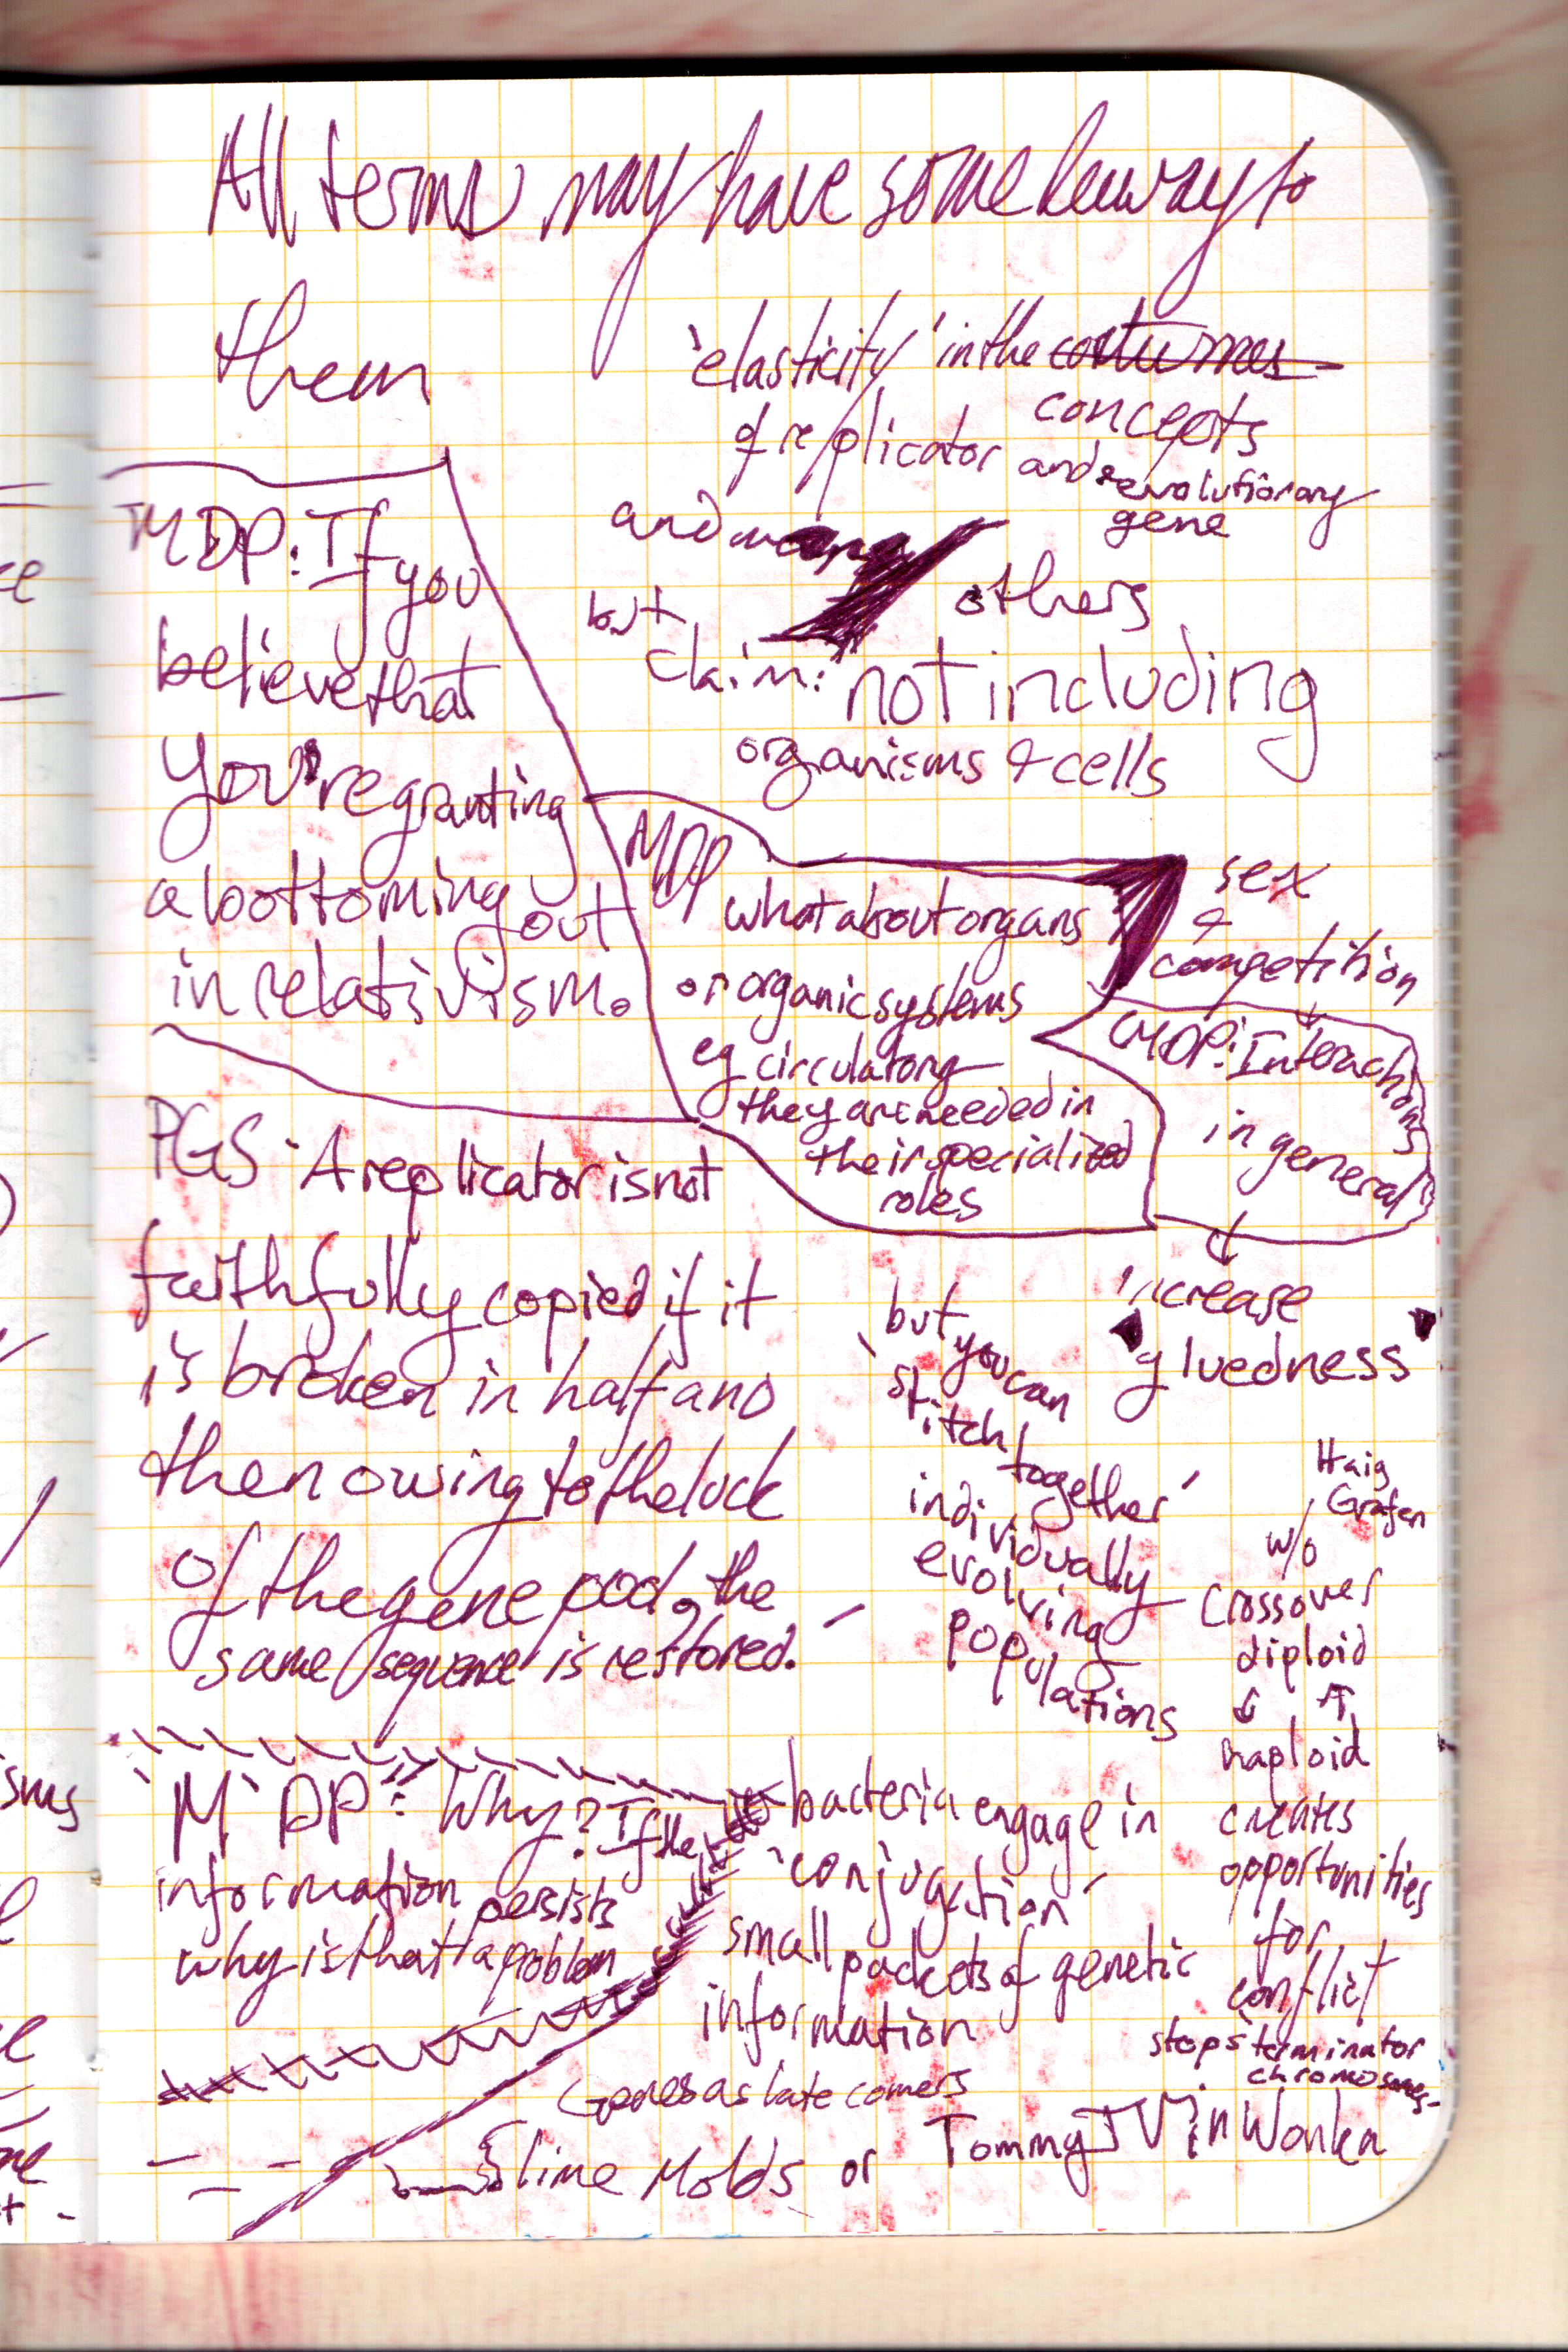 All terms may have some leeway to
them
'elasticity' in the
concepts
of replicator and evolutionary
gene
and
others
but
claim: not including
organisms & cells
MDP: If you
believe that
you're granting
a bottoming out
in relativism.
MDP
what about organs
or organic systems
eg circulatory
they are needed in
their specialized
roles
sex
&
competition
MDP: Interactions
in general
increase
'gluedness'
PGS: A replicator is not
faithfully copied if it
is broken in half and
then owing to the luck
of the gene pool, the
same 'sequence' is restored.
but you can
'stitch together'
individually
evolving
populations
Haig
Grafen
w/o
crossover
diploid
↓ ↑
haploid
creates
opportunities
for
conflict
stops terminator
chromosomes
MDP: Why? If the
information persists
why is that a problem
bacteria engage in
'conjugation'
small packets of genetic
information
Genes as late comers
Slime Molds or Tommy TV in Wonka